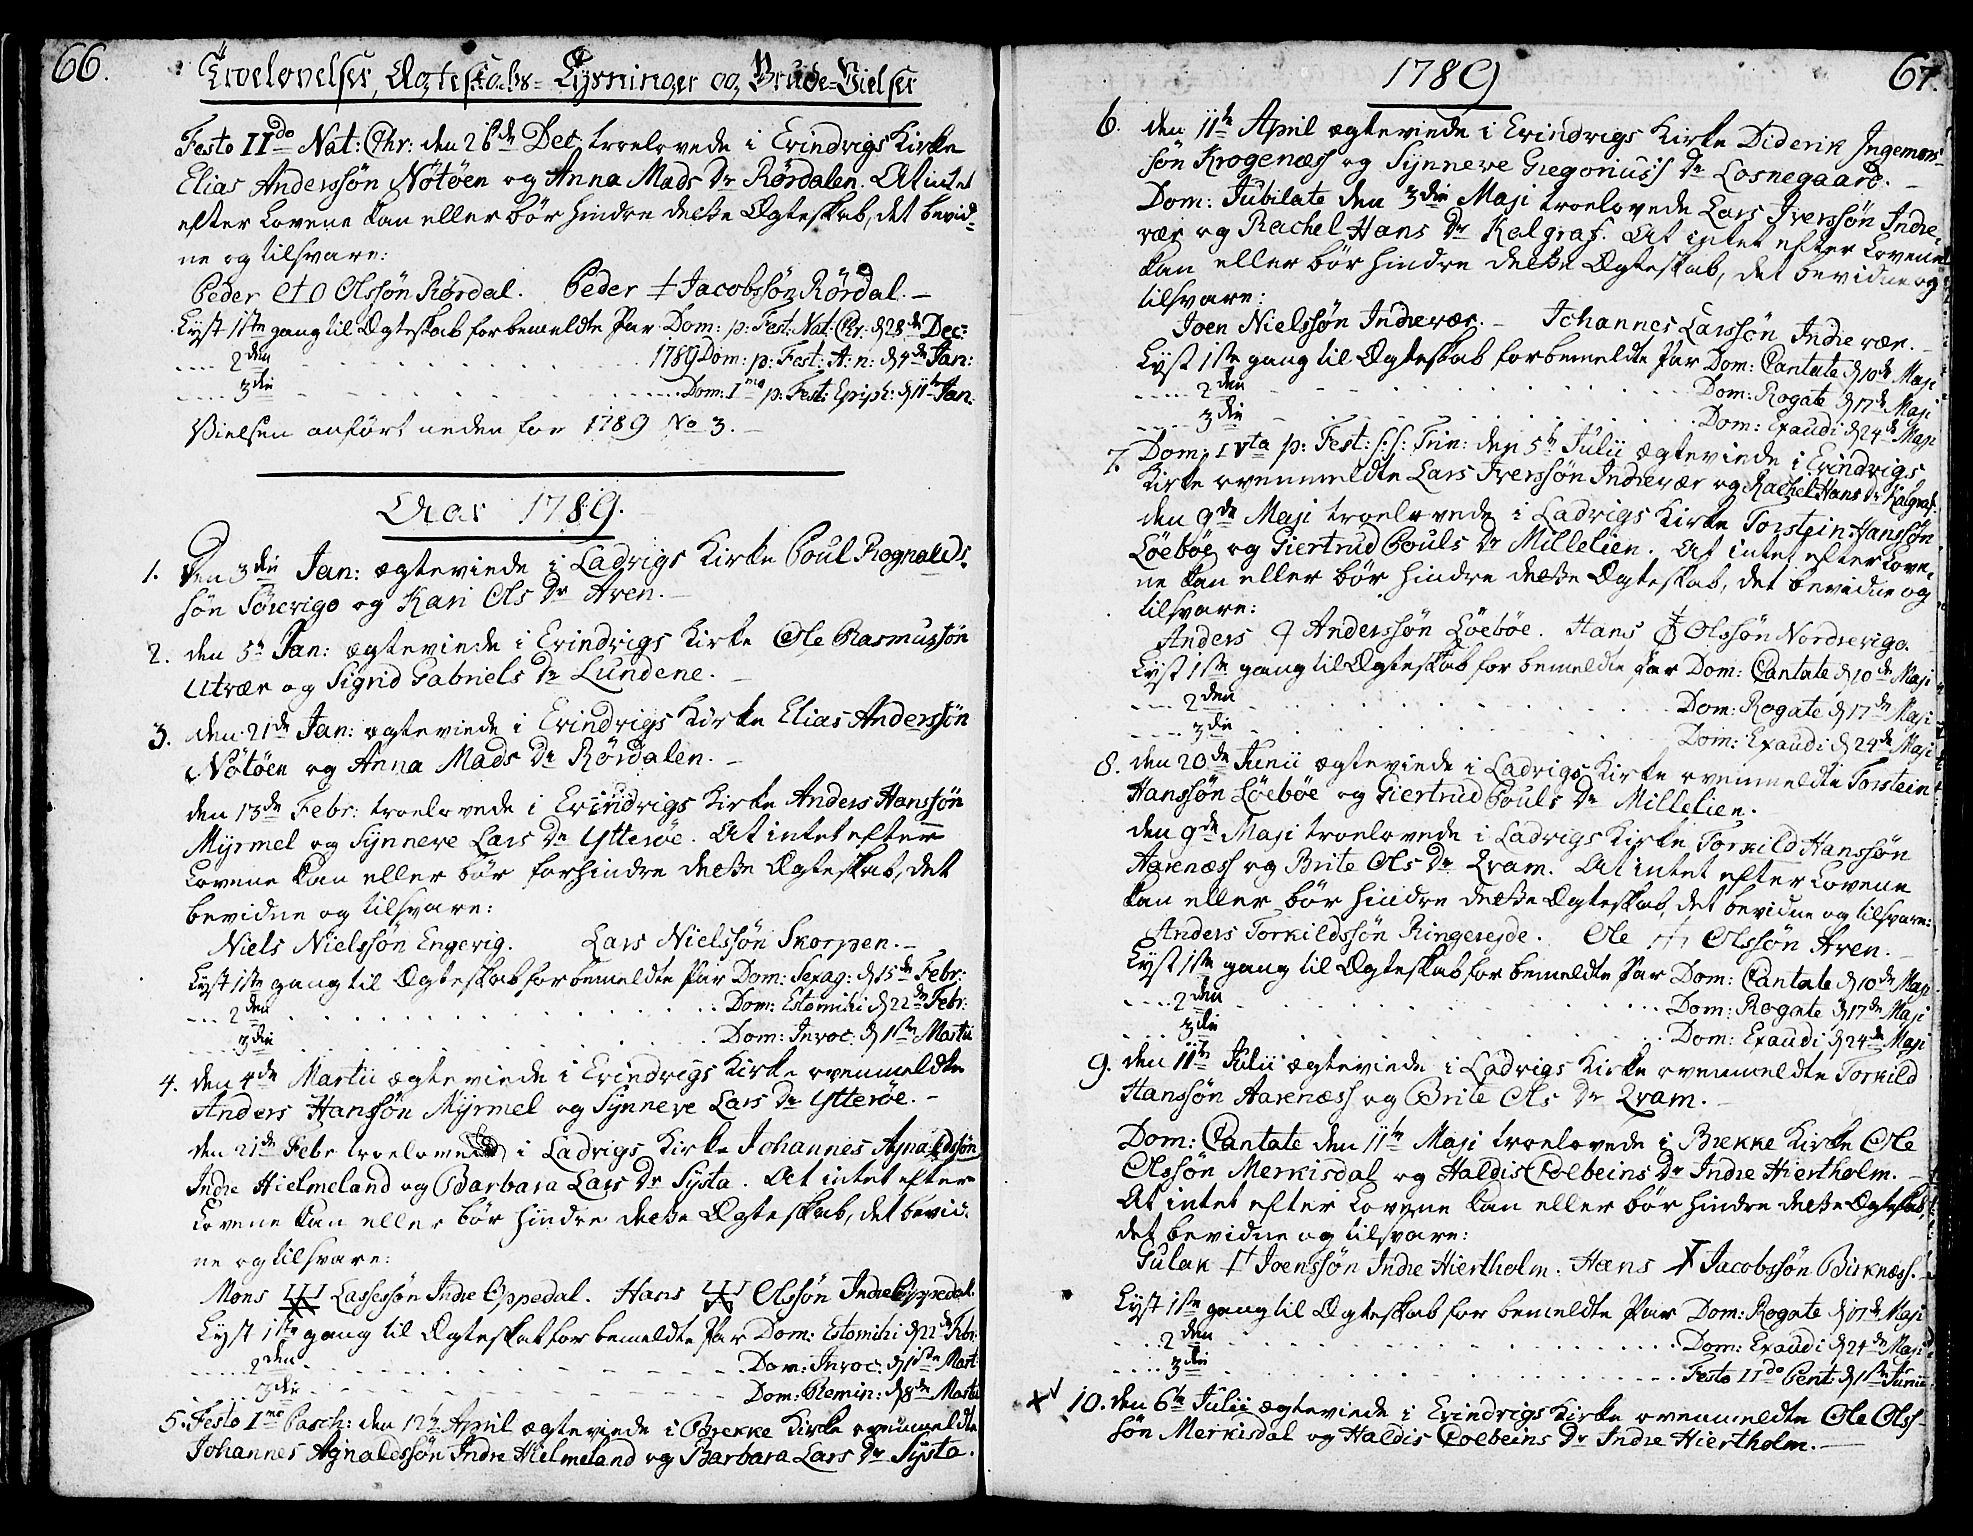 66.
Troelovelser, Ægteskabs-Lysninger og Brude-Vielser
Festo IIdo Nat: Chr: den 26de Dec troelovede i Evindvigs Kirke
Elias Anderssøn Nötöen og Anna Mads Dr Rørdalen. At intet
efter Lovene kan eller bör hindre dette Ægteskab, det bevid-
ne og tilsvare:
Peder Olssøn Rørdal. Peder Jacobssøn Rørdal. -
Lyst 1ste gang til Ægteskab for bemeldte Par Dom: p: Fest: Nat: Chr: d 28de Dec:
.... 2den 1789 Dom: p: Fest: A: n: d 4de Jan:
.... 3die Dom: Ima p: Fest: Epiph: d 11te Jan:
Vielsen anført neden for 1789 No 3. -
Aar 1789.
1. Den 3die Jan: ægteviede i Ladvigs Kirke Poul Rognalds-
søn Sørevigo og Kari Ols Dr Aven. -
2. den 5te Jan: ægteviede i Evindvigs Kirke Ole Rasmussøn
Utvær og Sigrid Gabriels Dr Lundene. -
3. den 21de Jan: ægteviede i Evindvigs Kirke Elias Anderssøn
Nötöen og Anna Mads Dr Rørdalen. -
den 13de Febr: troelovede i Evindvigs Kirke Anders Hanssøn
Myrmel og Synneve Lars Dr Ytterøe. At intet efter
Lovene kan eller bör forhindre dette Ægteskab, det
bevidne og tilsvare:
Niels Nielssøn Engevig. Lars Nielssøn Skorpen. -
Lyst 1ste gang til Ægteskab for bemeldte Par Dom: Sexag: d 15de Febr:
.... 2den Dom: Estomihi d 22de Febr:
.... 3die Dom: Invoc: d 1ste Martii
4. den 4de Martii ægteviede i Evindvigs Kirke ovenmeldte
Anders Hanssøn Myrmel og Synneve Lars Dr Ytterøe. -
den 21de Febr troelovede i Ladvigs Kirke Johannes Agnaldssøn
Indre Hielmeland og Barbara Lars Dr Systa. At intet efter
Lovene kan eller bör hindre dette Ægteskab, det bevid-
ne og tilsvare:
Mons Lassessøn Indre Oppedal. Hans Olssøn Indre Oppedal.
Lyst 1ste gang til Ægteskab for bemeldte Par Dom: Estomihi d 22de Febr:
.... 2den Dom: Invoc: d 1ste Mart:
.... 3die Dom: Remin: d 8de Martii
5. Festo Imo Pasch: den 12te April ægteviede i Brekke Kirke ovenmeldte
Johannes Agnaldssøn Indre Hielmeland og Barbara Lars Dr Systa.
1789
67.
6. den 11te April ægteviede i Evindvigs Kirke Diderik Ingemors-
søn Krogenæss og Synneve Gregoriuss Dr Losnegaard. -
Dom: Jubilate den 3die Maji troelovede Lars Iverssøn Indre-
vær og Rachel Hans Dr Kalgraf. At intet efter Lovene
kan eller bör hindre dette Ægteskab, det bevidne og
tilsvare:
Joen Nielssøn Indrevær. - Johannes Larssøn Indrevær. -
Lyst 1ste gang til Ægteskab for bemeldte Par Dom: Cantate d 10de Maji
.... 2den Dom: Rogate d 17de Maji
.... 3die Dom: Exaudi d 24de Maji
7. Dom: IVta p: Fest: S:S: Trin: den 5te Julii ægteviede i Evindvigs
Kirke ovenmeldte Lars Iverssøn Indrevær og Rachel Hans Dr Kalgraf.
den 9de Maji troelovede i Ladvigs Kirke Torstein Hanssøn
Löebøe og Giertrud Pouls Dr Millelien. At intet efter Love-
ne kan eller bör hindre dette Ægteskab, det bevidne og
tilsvare:
Anders Anderssøn Löebøe. Hans Olssøn Nordrevigo.
Lyst 1ste gang til Ægteskab for bemeldte Par Dom: Cantate d 10de Maji
.... 2den Dom: Rogate d 17de Maji
.... 3die Dom: Exaudi d 24de Maji
8. den 20de Junii ægteviede i Ladvigs Kirke ovenmeldte Torstein
Hanssøn Löebøe og Giertrud Pouls Dr Millelien. -
den 9de Maji troelovede i Ladvigs Kirke Torkild Hanssøn
Aarenæss og Brite Ols Dr Qvam. At intet efter Lovene
kan eller bör hindre dette Ægteskab, det bevidne og tilsvare:
Anders Torkildssøn Ringereide. Ole Olssøn Aven. -
Lyst 1ste gang til Ægteskab for bemeldte Par Dom: Cantate d 10de Maji
.... 2den Dom: Rogate d 17de Maji
.... 3die Dom: Exaudi d 24de Maji
9. den 11te Julii ægteviede i Ladvigs Kirke ovenmeldte Torkild
Hanssøn Aarenæss og Brite Ols Dr Qvam. -
Dom: Cantate den 11te Maji troelovede i Brekke Kirke Ole
Olssøn Merkisdal og Haldis Colbeins Dr Indre Hiertholm. -
At intet efter Lovene kan eller bör hindre dette Ægteskab,
det bevidne og tilsvare:
Gulak Joenssøn Indre Hiertholm. Hans Jacobssøn Birknæss. -
Lyst 1ste gang til Ægteskab for bemeldte Par Dom: Rogate d 17de Maji
.... 2den Dom: Exaudi d 24de Maji
.... 3die Festo IIdo Pent: d 1ste Junii
10. den 6te Julii ægteviede i Evindvigs Kirke ovenmeldte Ole Ols-
søn Merkisdal og Haldis Colbeins Dr Indre Hiertholm. -